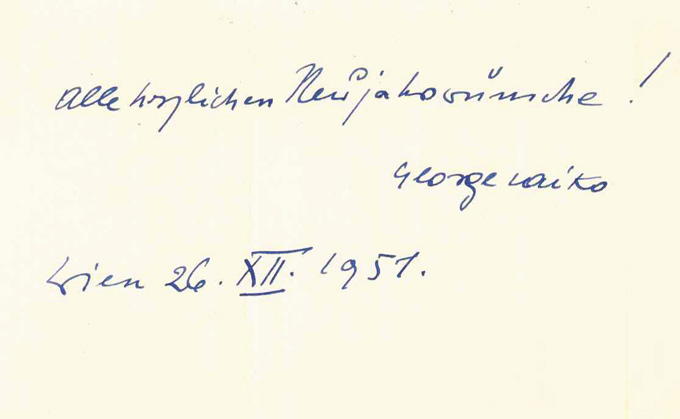 Alle herzlichen Neujahrswünsche!
George Saiko
Wien 26. XII. 1951.